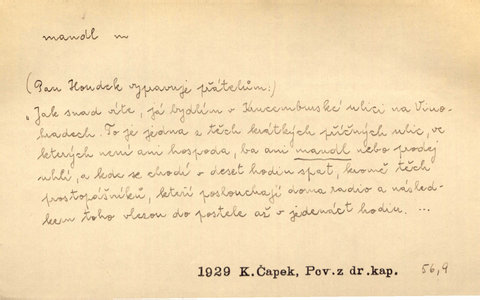 mandl m
(Pan Houdek vypravuje přátelům:)
"Jak snad víte, já bydlím v Lucemburské ulici na Vino-
hradech. To je jedna z těch krátkých příčných ulic, ve
kterých není ani hospoda, ba ani mandl nebo prodej
uhlí, a kde se chodí v deset hodin spat, kromě těch
prostopášníků, kteří poslouchají doma radio a násled-
kem toho vlezou do postele až v jedenáct hodin. ...
1929 K.Čapek, Pov.z dr.kap. 56,9